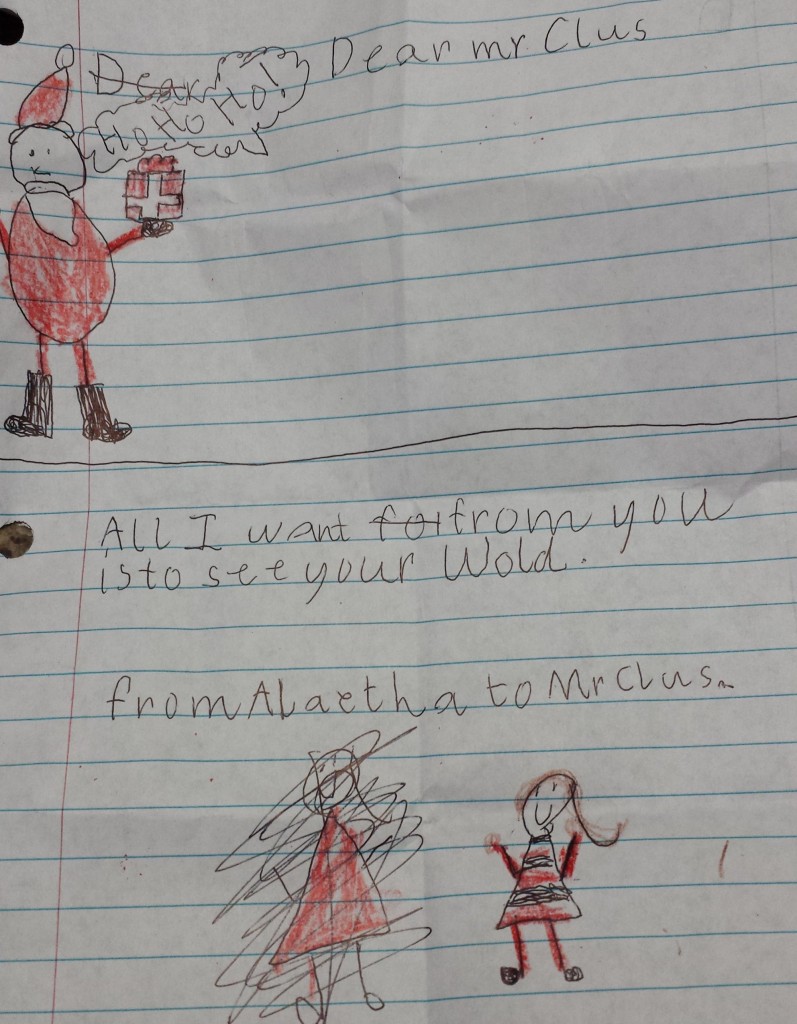 Dear Dear mr. Clus
HO HO HO!
All I want for from you
is to see your Wold.
from Alaetha to Mr Clus.